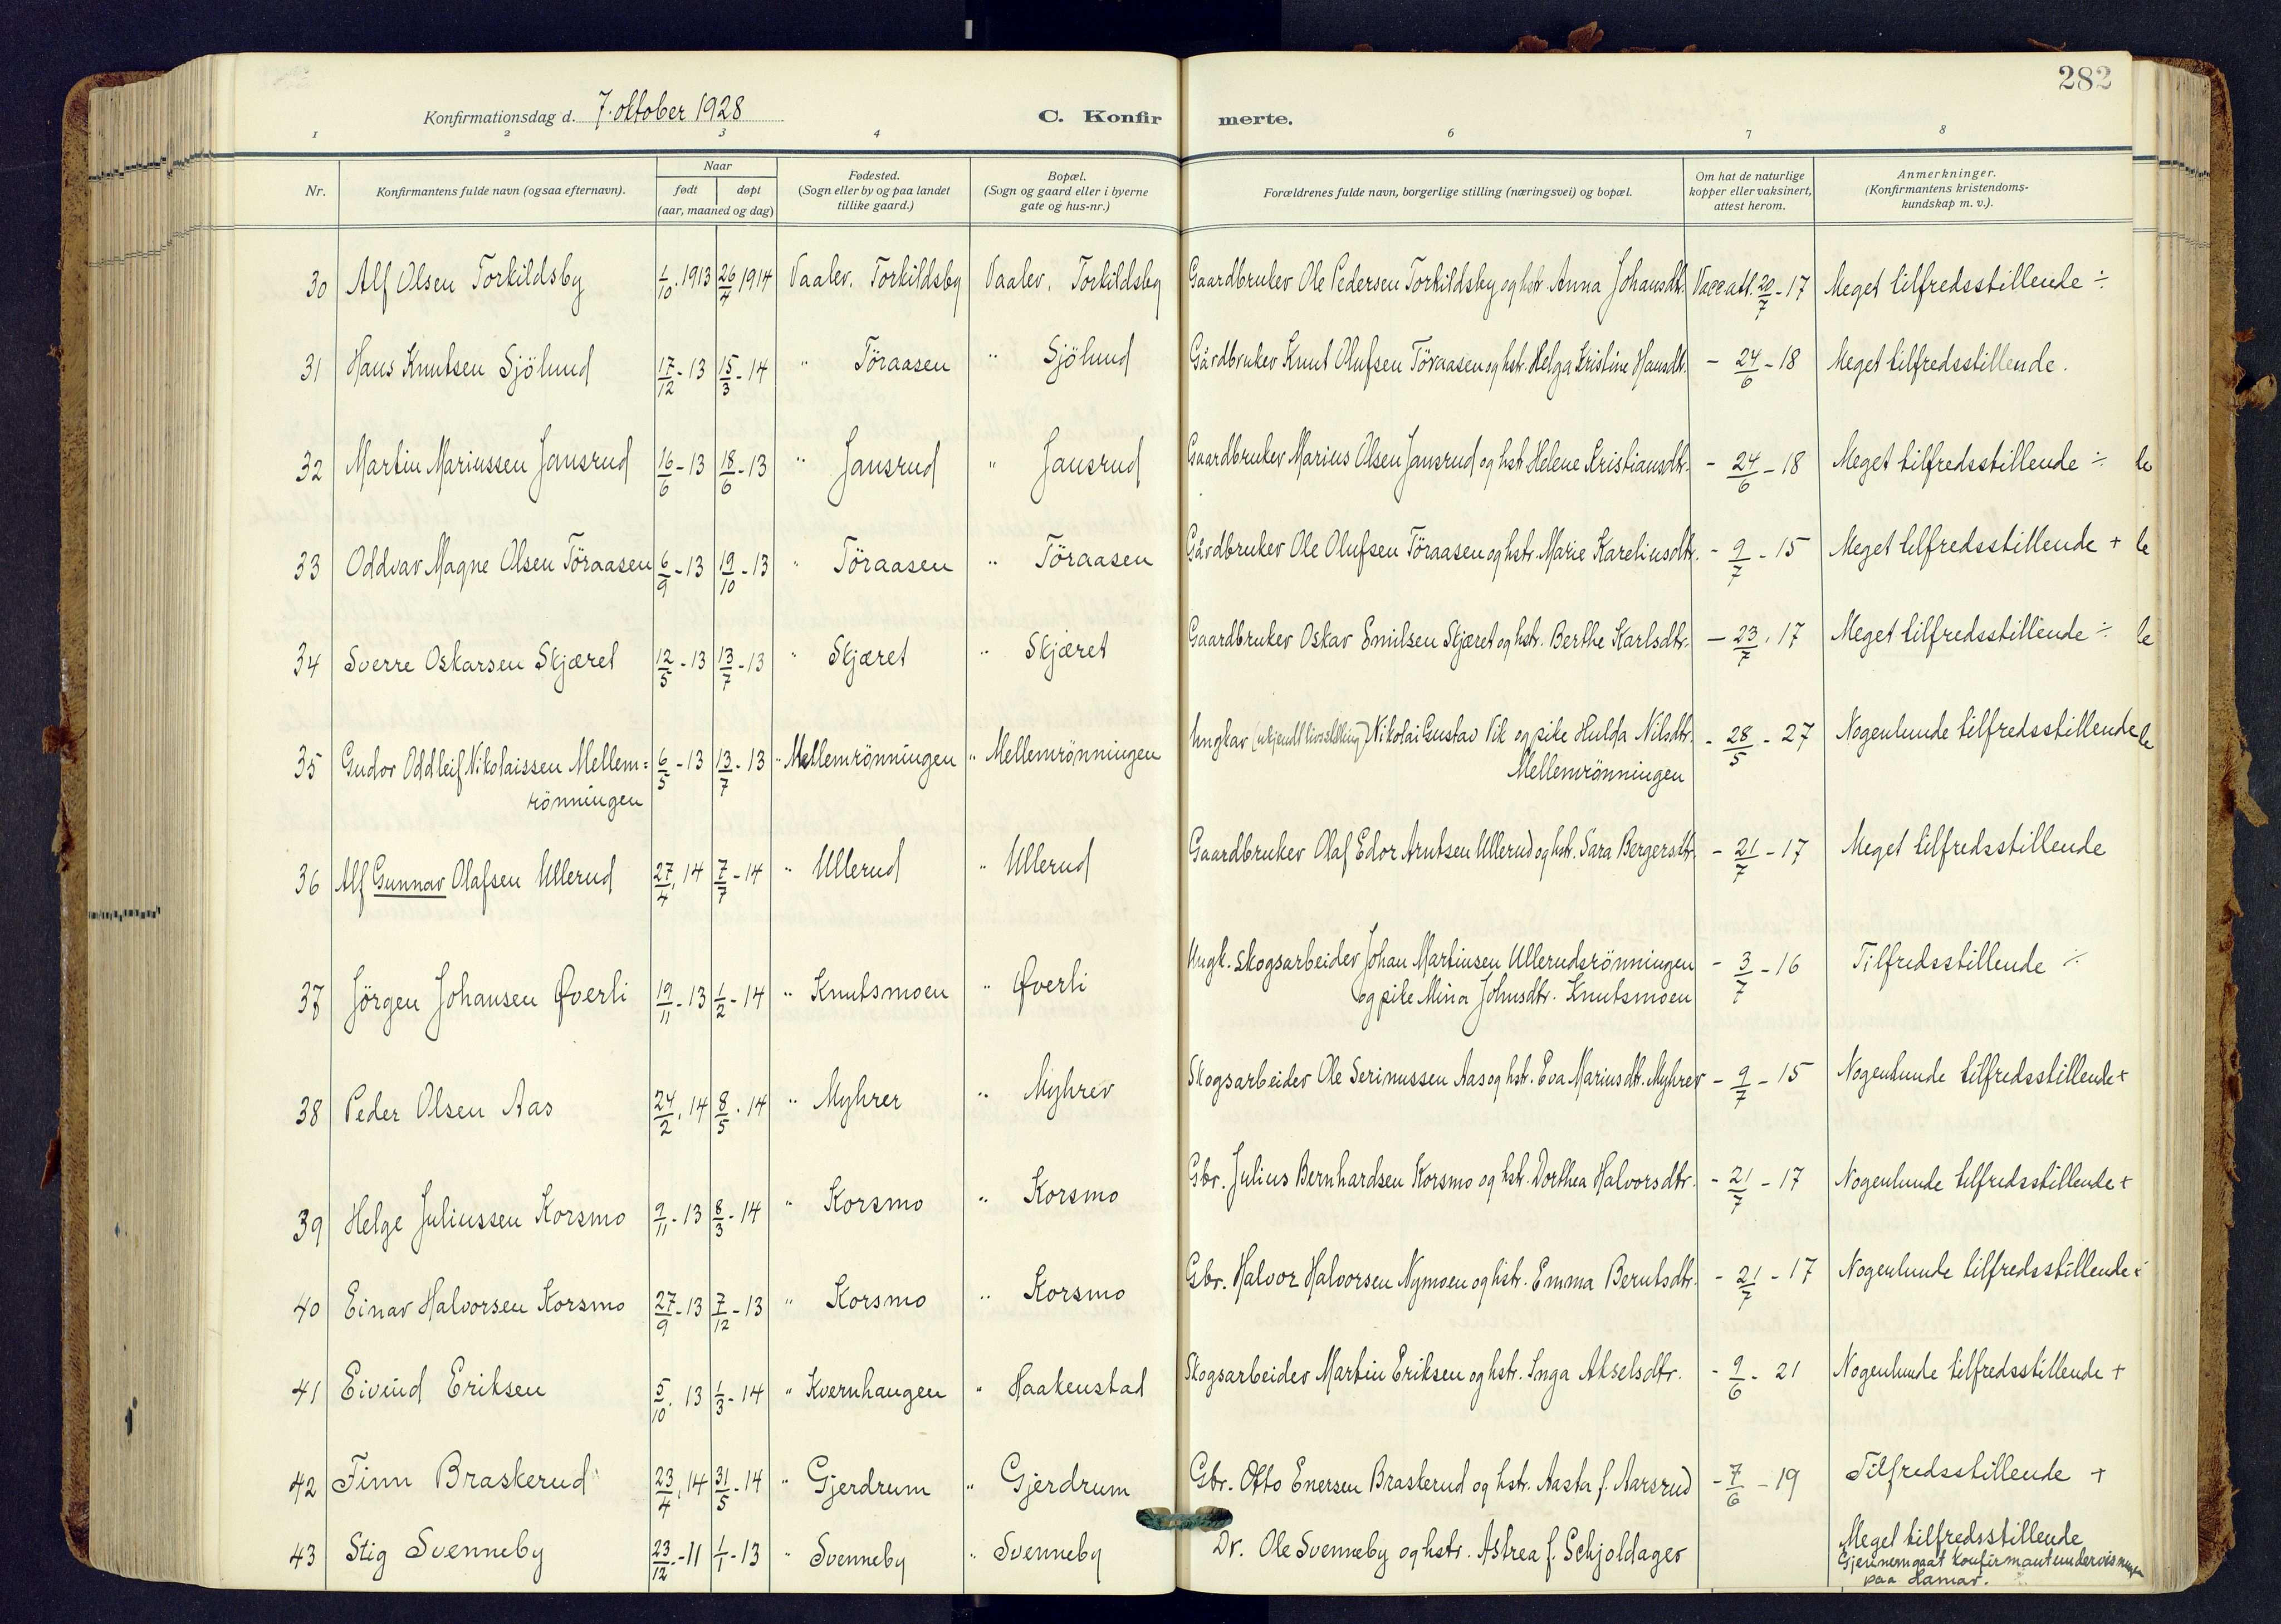 282
Konfirmationsdag d. 7. oktober 1928
C. Konfir merte.
1 2 3 4 6 7 8
Nr. Konfirmantens fulde navn (ogsaa efternavn). Naar født døpt (aar, maaned og dag) Fødested. (Sogn eller by og paa landet tillike gaard.) Bopæl. (Sogn og gaard eller i byerne gate og hus-nr.) Forældrenes fulde navn, borgerlige stilling (næringsvei) og bopæl. Om hat de naturlige kopper eller vaksinert, attest herom. Anmerkninger. (Konfirmantens kristendoms-kundskap m. v.).
30 Alf Olsen Torkildsby 1/10. 1913 26/4 1914 Vaaler. Torkildsby Vaaler, Torkildsby Gaardbruker Ole Pedersen Torkildsby og hstr. Anna Johansdtr. Vacc.att. 20/7 - 17 Meget tilfredsstillende ÷
31 Hans Knutsen Sjölund 17/12 - 13 15/3 - 14 " Töraasen " Sjölund Gårdbruker Knut Olufsen Töraasen og hstr. Helga Kristine Hansdtr. - 24/6 - 18 Meget tilfredsstillende.
32 Martin Mariussen Jansrud 16/6 - 13 18/6 - 13 " Jansrud " Jansrud Gaardbruker Marius Olsen Jansrud og hstr. Helene Kristiansdtr. - 24/6 - 18 Meget tilfredsstillende ÷ le
33 Oddvar Magne Olsen Töraasen 6/9 - 13 19/10 - 13 " Töraasen " Töraasen Gårdbruker Ole Olufsen Töraasen og hstr. Marie Kareliusdtr. - 9/7 - 15 Meget tilfredsstillende + le
34 Sverre Oskarsen Skjæret 12/5 - 13 13/7 - 13 " Skjæret " Skjæret Gaardbruker Oskar Emilsen Skjæret og hstr. Berthe Karlsdtr. - 23/7 . 17 Meget tilfredsstillende ÷ le
35 Gudor Oddleif Nikolaissen Mellem= 6/5 - 13 13/7 - 13 " Mellemrönningen " Mellemrönningen Ungkar (ukjendt livsstilling) Nikolai Gustav Vik og pike Hulda Nilsdtr. - 28/5 - 27 Nogenlunde tilfredsstillende le
rönningen Mellemrönningen
36 Alf Gunnar Olafsen Ullerud 27/4. 14 7/7 - 14 " Ullerud " Ullerud Gaardbruker Olaf Edor Arntsen Ullerud og hstr. Sara Bergersdtr. - 21/7 - 17 Meget tilfredsstillende
37 Jörgen Johansen Øverli 19/11 - 13 1/2 - 14 " Knutsmoen " Øverli Ungk. skogsarbeider Johan Martinsen Ullerudsrönningen - 3/7 - 16 Tilfredsstillende ÷
og pike Mina Johnsdtr. Knutsmoen
38 Peder Olsen Aas 24/2. 14 8/5 . 14 " Myhrer " Myhrer Skogsarbeider Ole Serinussen Aas og hstr. Eva Mariusdtr. Myhrer - 9/7 - 15 Nogenlunde tilfredsstillende +
39 Helge Juliussen Korsmo 9/11 - 13 8/3 - 14 " Korsmo " Korsmo Gbr. Julius Bernhardsen Korsmo og hstr. Dorthea Halvorsdtr. - 21/7 - 17 Nogenlunde tilfredsstillende +
40 Einar Halvorsen Korsmo 27/9 - 13 7/12 - 13 " Korsmo " Korsmo Gbr. Halvor Halvorsen Nymoen og hstr. Emma Berntsdtr. - 21/7 - 17 Nogenlunde tilfredsstillende ÷
41 Eivind Eriksen 5/10. 13 1/3 - 14 " Kvernhaugen " Haakenstad Skogsarbeider Martin Eriksen og hstr. Inga Akselsdtr. - 9/6 - 21 Nogenlunde tilfredsstillende +
42 Finn Braskerud 23/4. 14 31/5 - 14 " Gjerdrum " Gjerdrum Gbr. Otto Enersen Braskerud og hstr. Aasta f. Aarsrud - 7/6 - 19 Tilfredsstillende +
43 Stig Svenneby 23/12 - 11 1/1 - 13 " Svenneby " Svenneby Dr. Ole Svenneby og hstr. Astrea f. Schjoldager Meget tilfredsstillende
Gjennemgaat konfirmantundervisningen
paa Hamar.